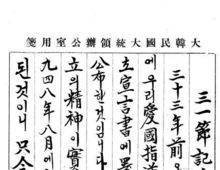 大韓民國大統領辦公室用箋
三一節記
三十三年前오
에우리愛國指
立宣言書에
公布한것이니다
立의精神이實
九四八年八月에
된것이니 只今